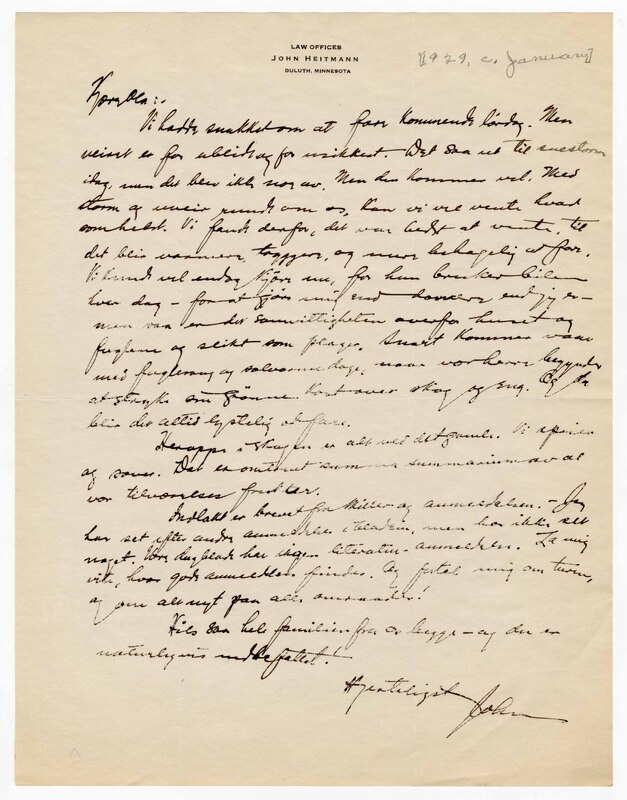 LAW OFFICES
JOHN HEITMANN
DULUTH, MINNESOTA
[1929, c. January]
Vi hadde snakket om at fare kommende lørdag. Men
veiret er for ubeidag for usikkert. Det saa ut til snestorm
idag, men det blev ikke noe av. Men den kommer vel. Med
storm og uveir rundt om os, kan vi vel vente hvad
somhelst. Vi fandt derfor, det var bedst at vente, til
det blir varmere, tryggere, og mere behagelig at fare.
Vi kunde vel endog kjøre nu, for hun bruker bilen
hver dag - for at gjøre mig end
men saa er det samvittigheten overfor huset og
fuglene og slikt som plager. Snart kommer vaar
med fuglesang og solvarme dage, naar vorherre begynder
at stryke sin grønne kost over skog og eng. Og da
blir det altid lystelig at fare.
Heroppe i skogen er alt ved det gamle. Vi spiser
og sover. Det er omtrent summa summarium av al
vor tilværelses frukter.
Indlakt er brevet fra Miller og anmeldelsen. - Jeg
har set efter andre anmeldelser i bladene, men har ikke set
noget. Vore dagblade har ingen literatur-anmeldelse. La mig
vite, hvor gode anmeldelser findes. Og fortæl mig om turen,
og om alt nyt paa alle omraader!
Hils saa hele familien fra os begge - og du er
naturligvis indbefattet!
Hjerteligst
John